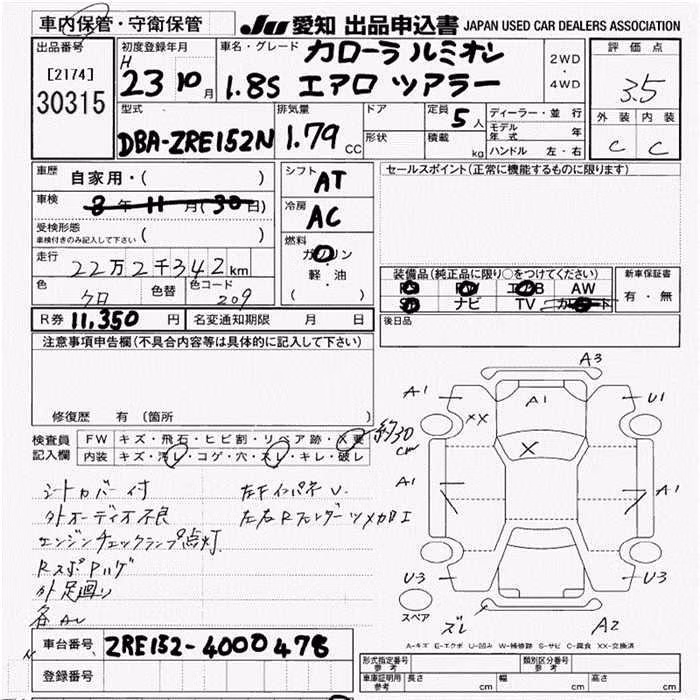 車内保管・守衛保管
JU 愛知 出品申込書 JAPAN USED CAR DEALERS ASSOCIATION
出品番号
[2174]
30315
初度登録年月
H 23 10 月
車名・グレード
カローラ ルミオン
1.8S エアロ ツアラー
2WD
・
4WD
評価点
3.5
外装 内装
C C
型式
DBA-ZRE152N
排気量
1.79 CC
ドア
形状
定員 5 人
積載 kg
ディーラー・並行
モデル年式 年
ハンドル 左・右
車歴 自家用・( )
車検 3年 11月(30日)
受検形態
車検付きのみ記入して下さい ( )
走行
22万2千342 km
色 クロ
色替
色コード 209
シフト AT
冷房 AC
燃料
ガソリン
・
軽・油
( )
セールスポイント(正常に機能するものに限ります)
装備品(純正品に限り○をつけてください)
AW
ナビ TV
新車保証書
有・無
後日品
R券 11,350 円
名変通知期限 月 日
注意事項申告欄(不具合内容等は具体的に記入して下さい)
修復歴 有(箇所 )
検査員記入欄
FW キズ・飛石・ヒビ割・リペア跡・X要
内装 キズ・汚レ・コゲ・穴・スレ・キレ・破レ
約30cm
シートカバー付
外オーディオ不良
エンジンチェックランプ点灯
RスポPハゲ
外足廻り
各AU
左右Rフェンダーツメカロエ
A3
A1
A1
U1
XX
X
A1
A1
U3
U3
スペア
ズレ
A2
A-キズ E-エクボ U-凹み W-補修跡 S-サビ C-腐食 XX-交換済
車台番号 ZRE152-4000478
登録番号
形式指定番号
参考
類別区分番号
参考
車庫証明用
参考
長さ cm
幅 cm
高さ cm